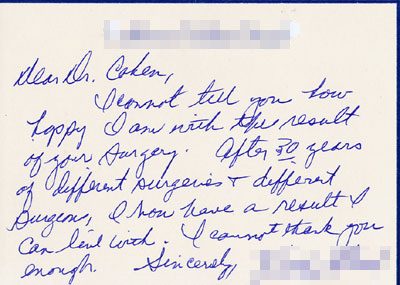 Dear Dr. Cohen,
I cannot tell you how
happy I am with the result
of your surgery. After 30 years
of different surgeries + different
surgeons, I now have a result I
can live with. I cannot thank you
enough. Sincerely,